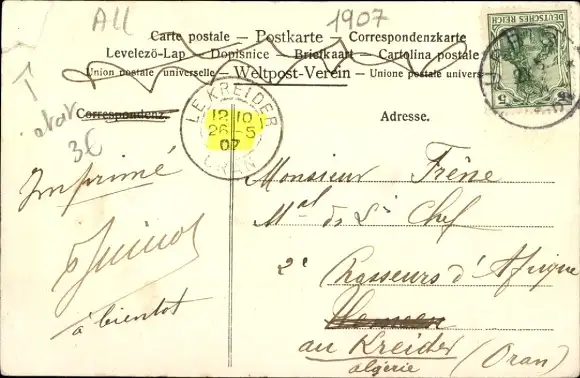 All
1907
Carte postale – Postkarte – Correspondenzkarte
Levelező-Lap – Dopisnice – Briefkaart – Cartolina postale
Union postale universelle – Weltpost-Verein – Unione postale univers
DEUTSCHES REICH
5
Correspondenz.
Adresse.
LE KREIDER
12 10
26 -5
07
ORAN
état
3€
Imprimé
à bientôt
Monsieur Frêne
Mal des Lis Chef
2e Chasseurs d'Afrique
au Kreider (Oran)
algérie